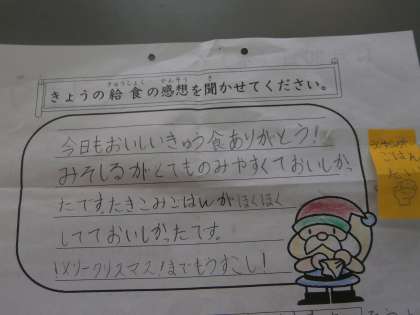 きょうの給食の感想を聞かせてください。
今日もおいしいきゅう食ありがとう!
みそしるがとてものみやすくておいしかっ
たです。たきこみごはんがほくほく
してておいしかったです。
メリークリスマス!までもうすこし!
ごはん